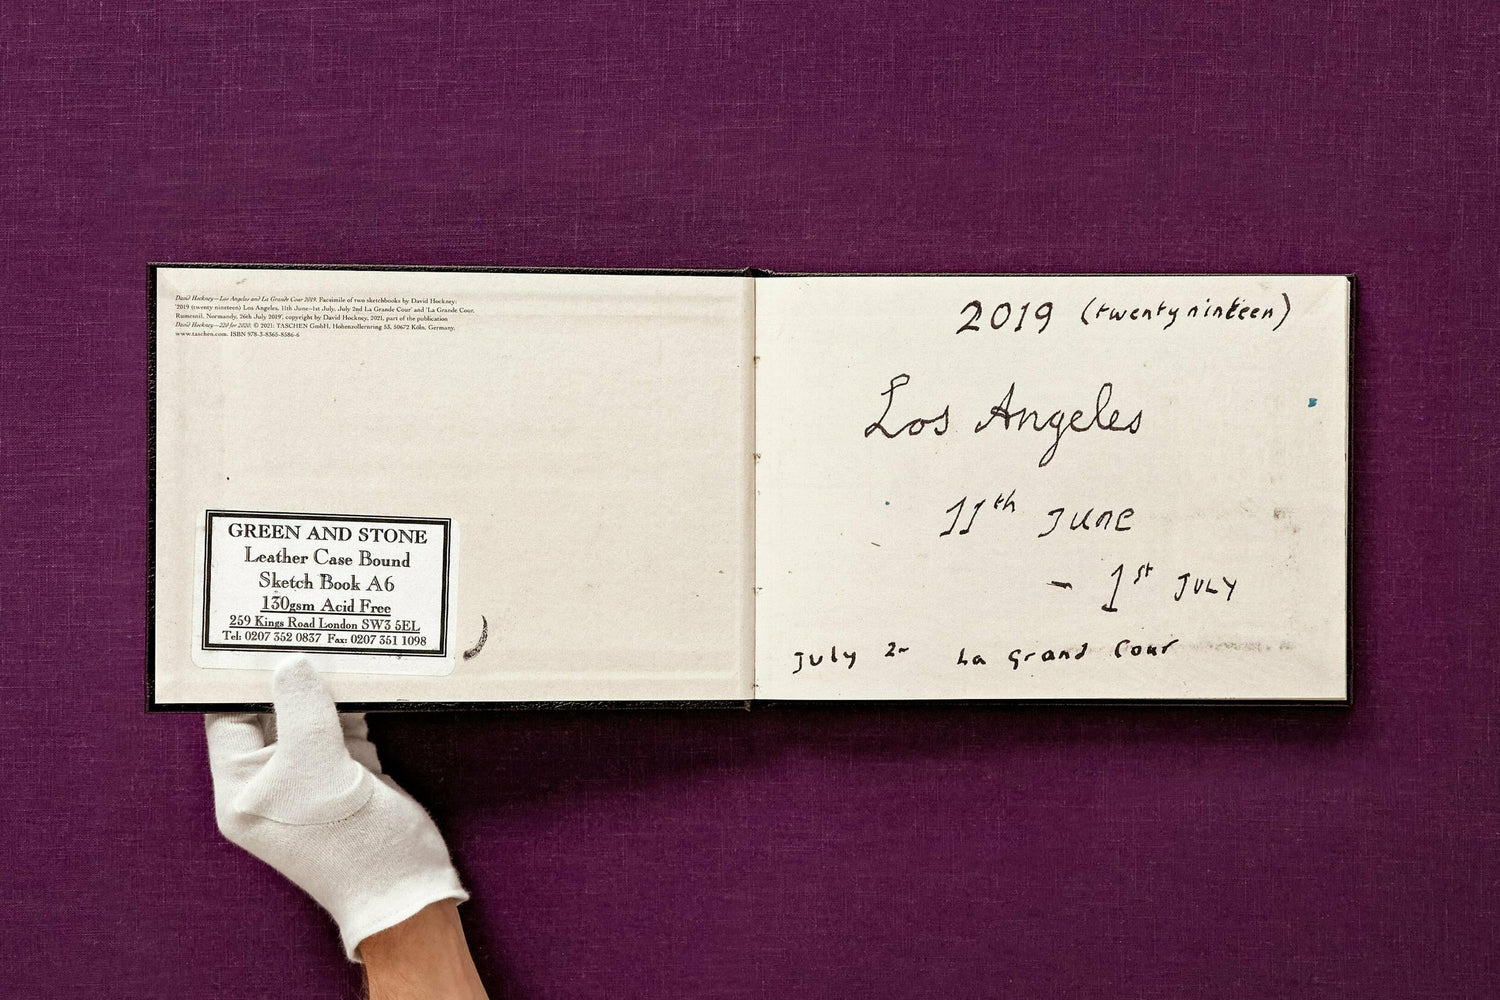 David Hockney—Los Angeles and La Grande Cour 2019. Facsimile of two sketchbooks by David Hockney:
'2019 (twenty nineteen) Los Angeles, 11th June–1st July, July 2nd La Grande Cour' and 'La Grande Cour,
Rumesnil, Normandy, 26th July 2019', copyright by David Hockney, 2021, part of the publication
David Hockney—220 for 2020. © 2021: TASCHEN GmbH, Hohenzollernring 53, 50672 Köln, Germany,
www.taschen.com. ISBN 978-3-8365-8586-6
GREEN AND STONE
Leather Case Bound
Sketch Book A6
130gsm Acid Free
259 Kings Road London SW3 5EL
Tel: 0207 352 0837 Fax: 0207 351 1098
2019 (twenty nineteen)
Los Angeles
11th JUNE
- 1st JULY
July 2- La Grand Cour